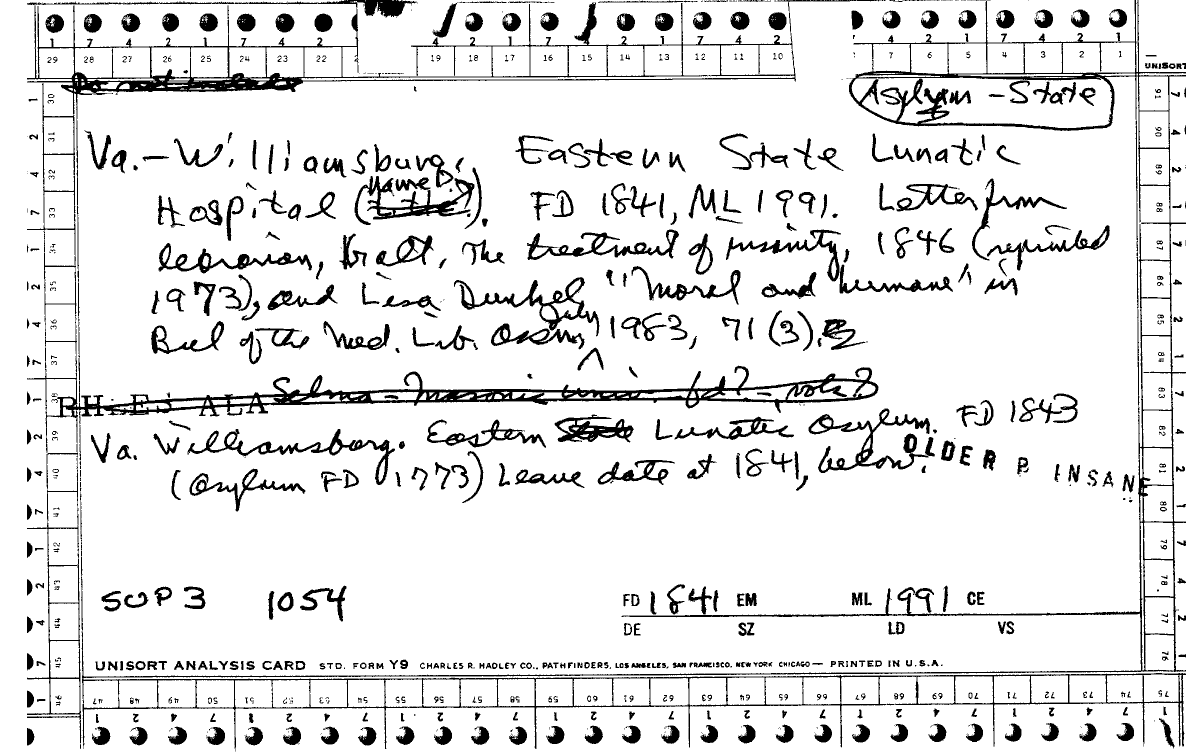 7 4 2 1 7 4 2 4 2 1 7 4 2 1 4 2 1 7 4 2 1
29 28 27 26 25 24 23 22 19 18 17 16 15 14 13 12 11 10 7 6 5 4 3 2 1
UNISORT
Do not include
Asylum - State
Va. - Williamsburg. Eastern State Lunatic
Hospital (title?) name D.?). FD 1841, ML 1991. Letter from
librarian, Galt, The treatment of insanity, 1846 (reprinted
1973), and Lisa Dunkel, "Moral and humane" in
Bul of the Med. Lib. Assn, July 1983, 71 (3).
RHEES ALA Selma - Masonic Univ. fd? - vols?
Va. Williamsburg. Eastern State Lunatic Asylum. FD 1843
(Asylum FD 1773) Leave date at 1841, below.
OLDER B INSANE
SUP 3 1054
FD 1841 EM ML 1991 CE
DE SZ LD VS
UNISORT ANALYSIS CARD STD. FORM Y9 CHARLES R. HADLEY CO., PATHFINDERS, LOS ANGELES, SAN FRANCISCO, NEW YORK CHICAGO — PRINTED IN U.S.A.
47 48 49 50 51 52 53 54 55 56 57 58 59 60 61 62 63 64 65 66 67 68 69 70 71 72 73 74 75